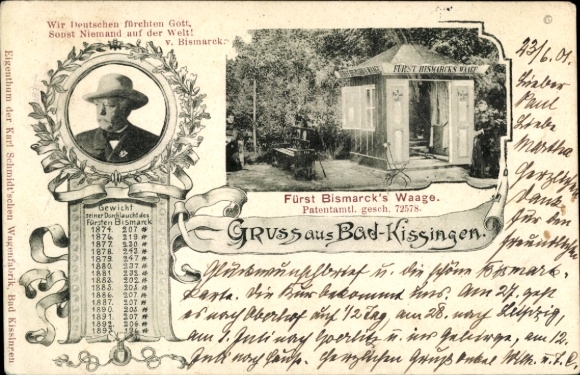 Wir Deutschen fürchten Gott,
Sonst Niemand auf der Welt!
v. Bismarck.
Eigenthum der Karl Schmidt'schen Wagenfabrik, Bad Kissingen
FÜRST BISMARCKS WAAGE
Fürst Bismarck's Waage.
Patentamtl. gesch. 72578.
Gruss aus Bad-Kissingen.
Gewicht
seiner Durchlaucht des
Fürsten Bismarck
1874. 207 ℔
1876. 219 ℔
1877. 230 ℔
1878. 242 ℔
1879. 247 ℔
1880. 237 ℔
1881. 232 ℔
1883. 202 ℔
1885. 205 ℔
1886. 207 ℔
1887. 207 ℔
1890. 205 ℔
1891. 207 ℔
1892. 206 ℔
1893. 196 ℔
23/6. 01.
Lieber
Paul
Liebe
Martha
Herzlichen
Dank
für den
freundlichen
Glückwunschbrief u. die schöne
Karte. Die Kur bekommt uns. Am 27. geht
es nach Oberhof auf 1/2 Tag, am 28. nach Leipzig,
am 1. Juli nach Goerlitz u. ins Gebirge, am 12.
Juli nach Hause. Herzlichen Gruß Onkel Wilh. u. T. C.